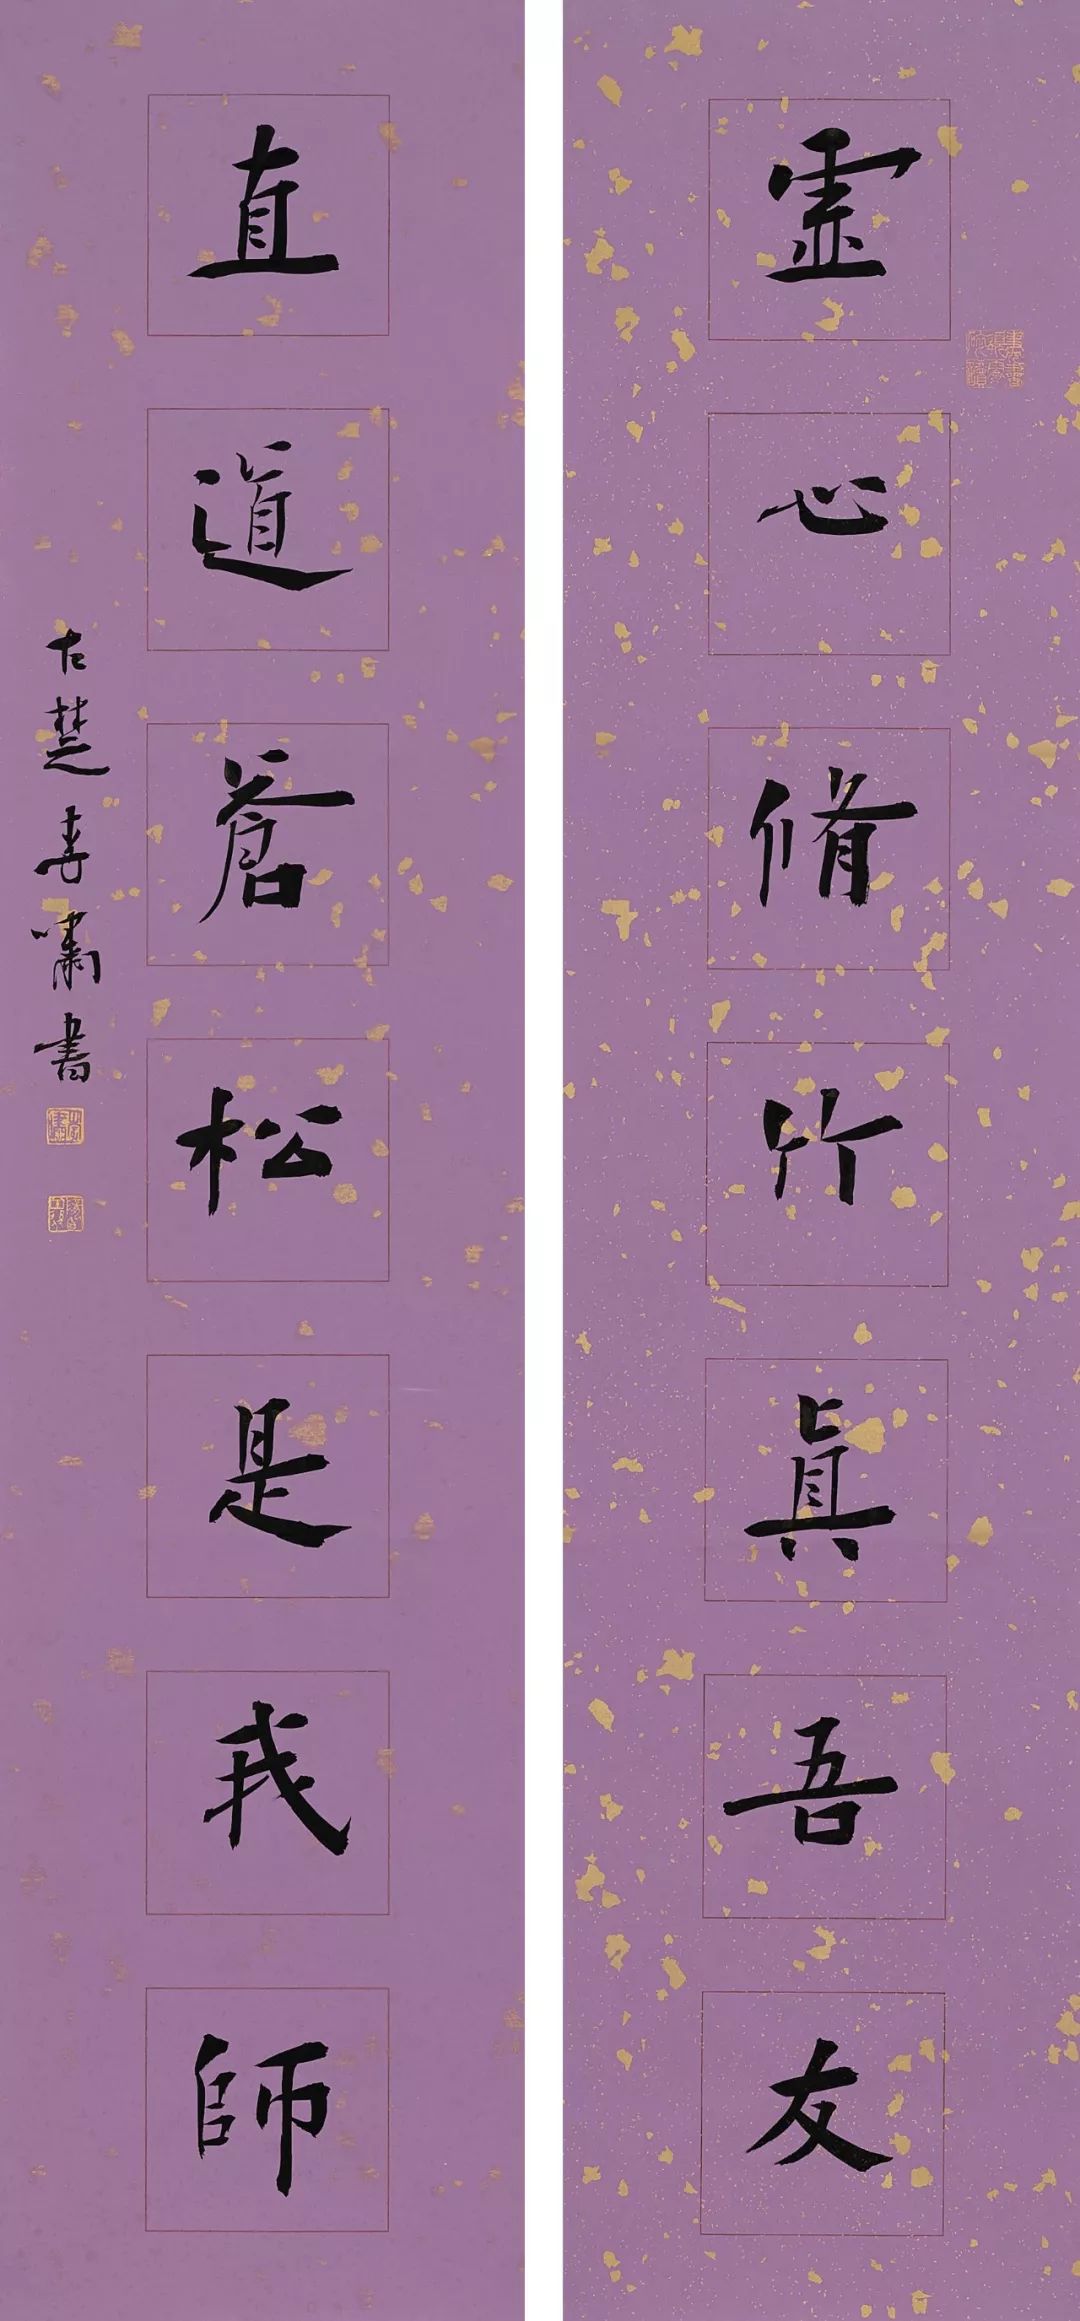 虛心脩竹眞吾友
直道蒼松是我師
楚李嘯書